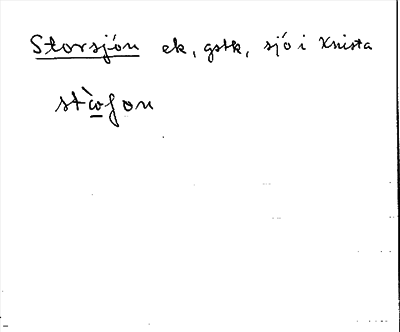 Storsjön ek, gstk, sjö i Knista
stɷ̀ʃon